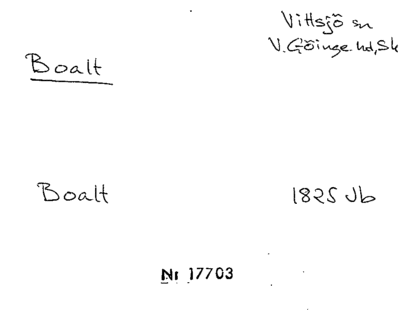 Vittsjö sn
V.Göinge.hd,Sk
Boalt
Boalt 1825 Jb
Nr 17703